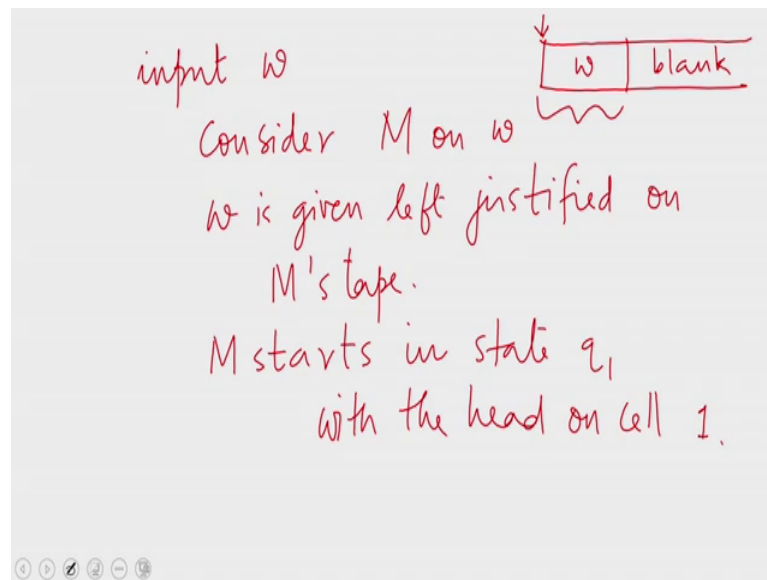 input w
w blank
Consider M on w
w is given left justified on
M's tape.
M starts in state q₁
with the head on cell 1.